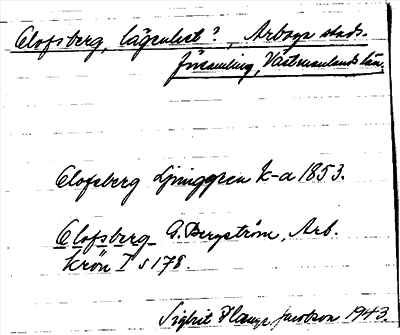 Olofsberg, lägenhet?, Arboga stads-
församling, Västmanlands län.
Olofsberg Ljunggren k-a 1853.
Olofsberg G. Bergström, Arb.
krön I s 178.
Sigbrit Jacobson 1943.